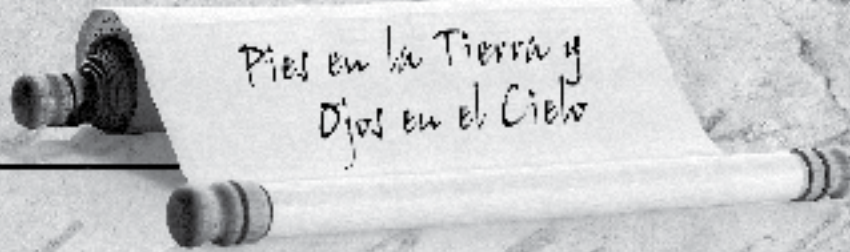 Pies en la Tierra y
Ojos en el Cielo